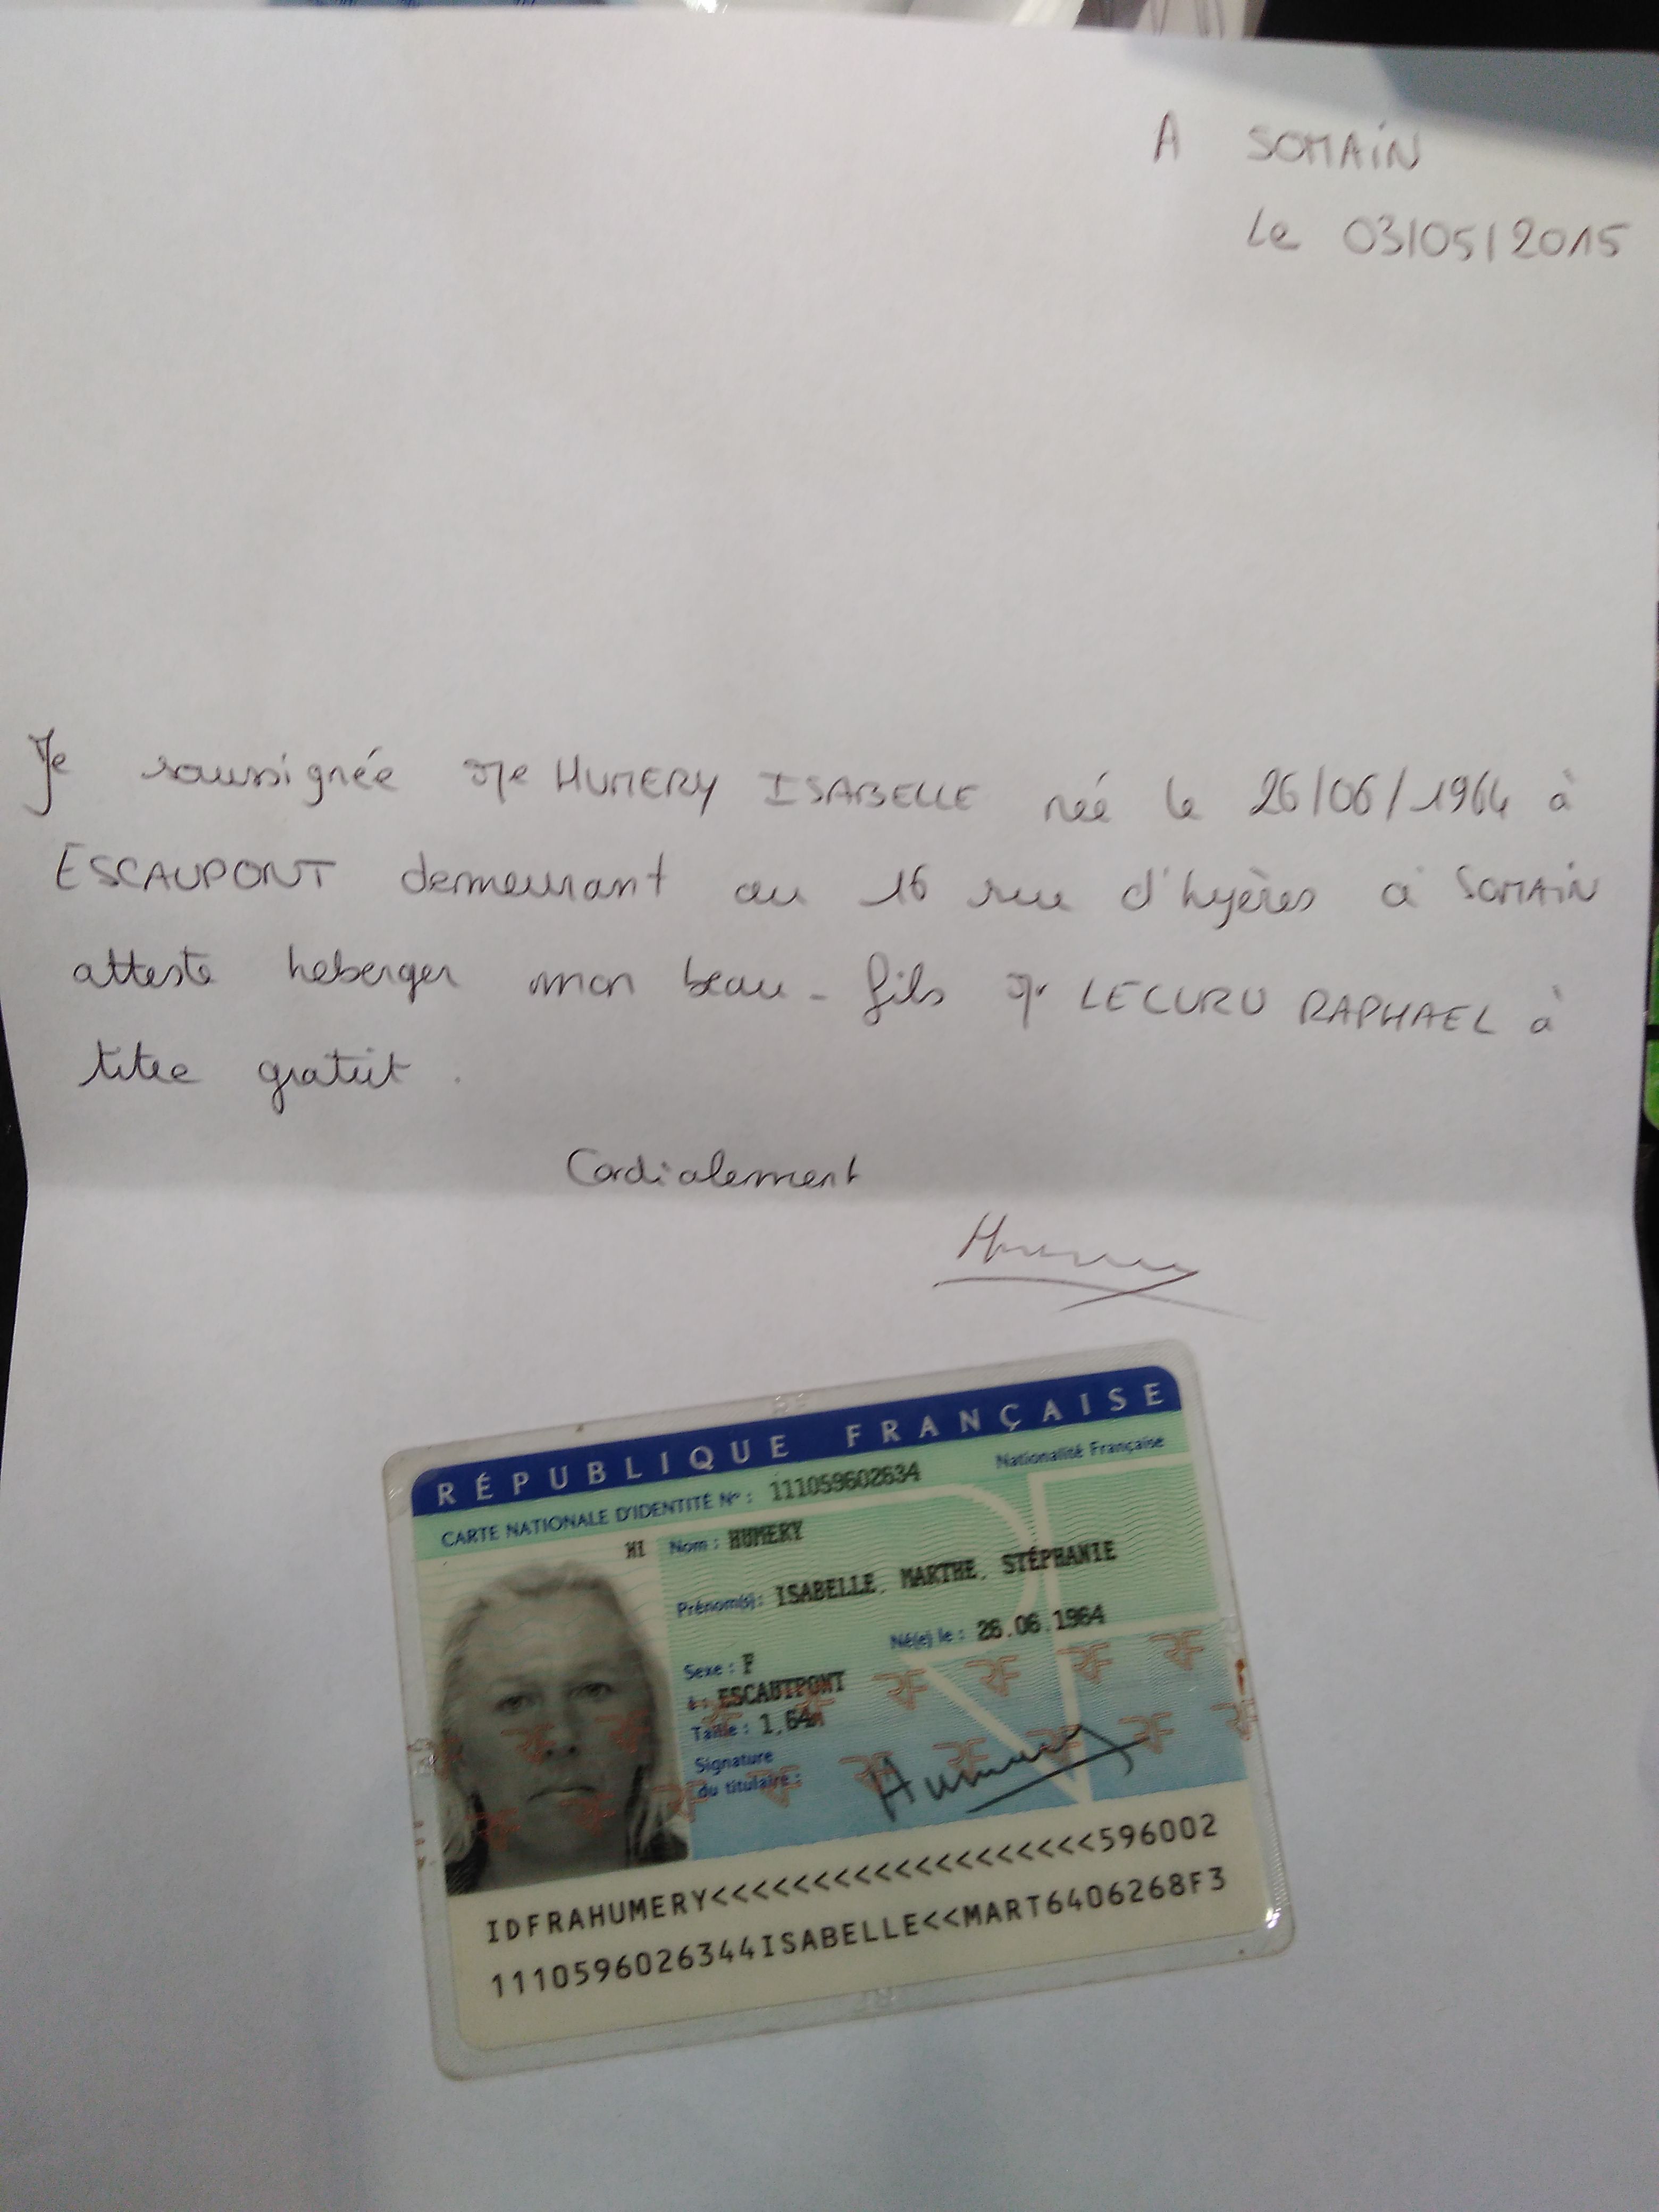 A SOMAIN
Le 03/05/2015
Je soussignée Me HUMERY ISABELLE née le 26/06/1964 à
ESCAUPONT demeurant au 16 rue d'hyères à SOMAIN
atteste heberger mon beau-fils Mr LECURU RAPHAEL à
titre gratuit.
Cordialement
Humery
RÉPUBLIQUE FRANÇAISE
CARTE NATIONALE D'IDENTITÉ N° : 111059602634 Nationalité Française
HI Nom : HUMERY
Prénom(s) : ISABELLE, MARTHE, STÉPHANIE
Sexe : F Né(e) le : 26.06.1964
à : ESCAUTPONT
Taille : 1,64m
Signature
du titulaire :
Humery
IDFRAHUMERY<<<<<<<<<<<<<<<<<<<596002
1110596026344ISABELLE<<MART6406268F3